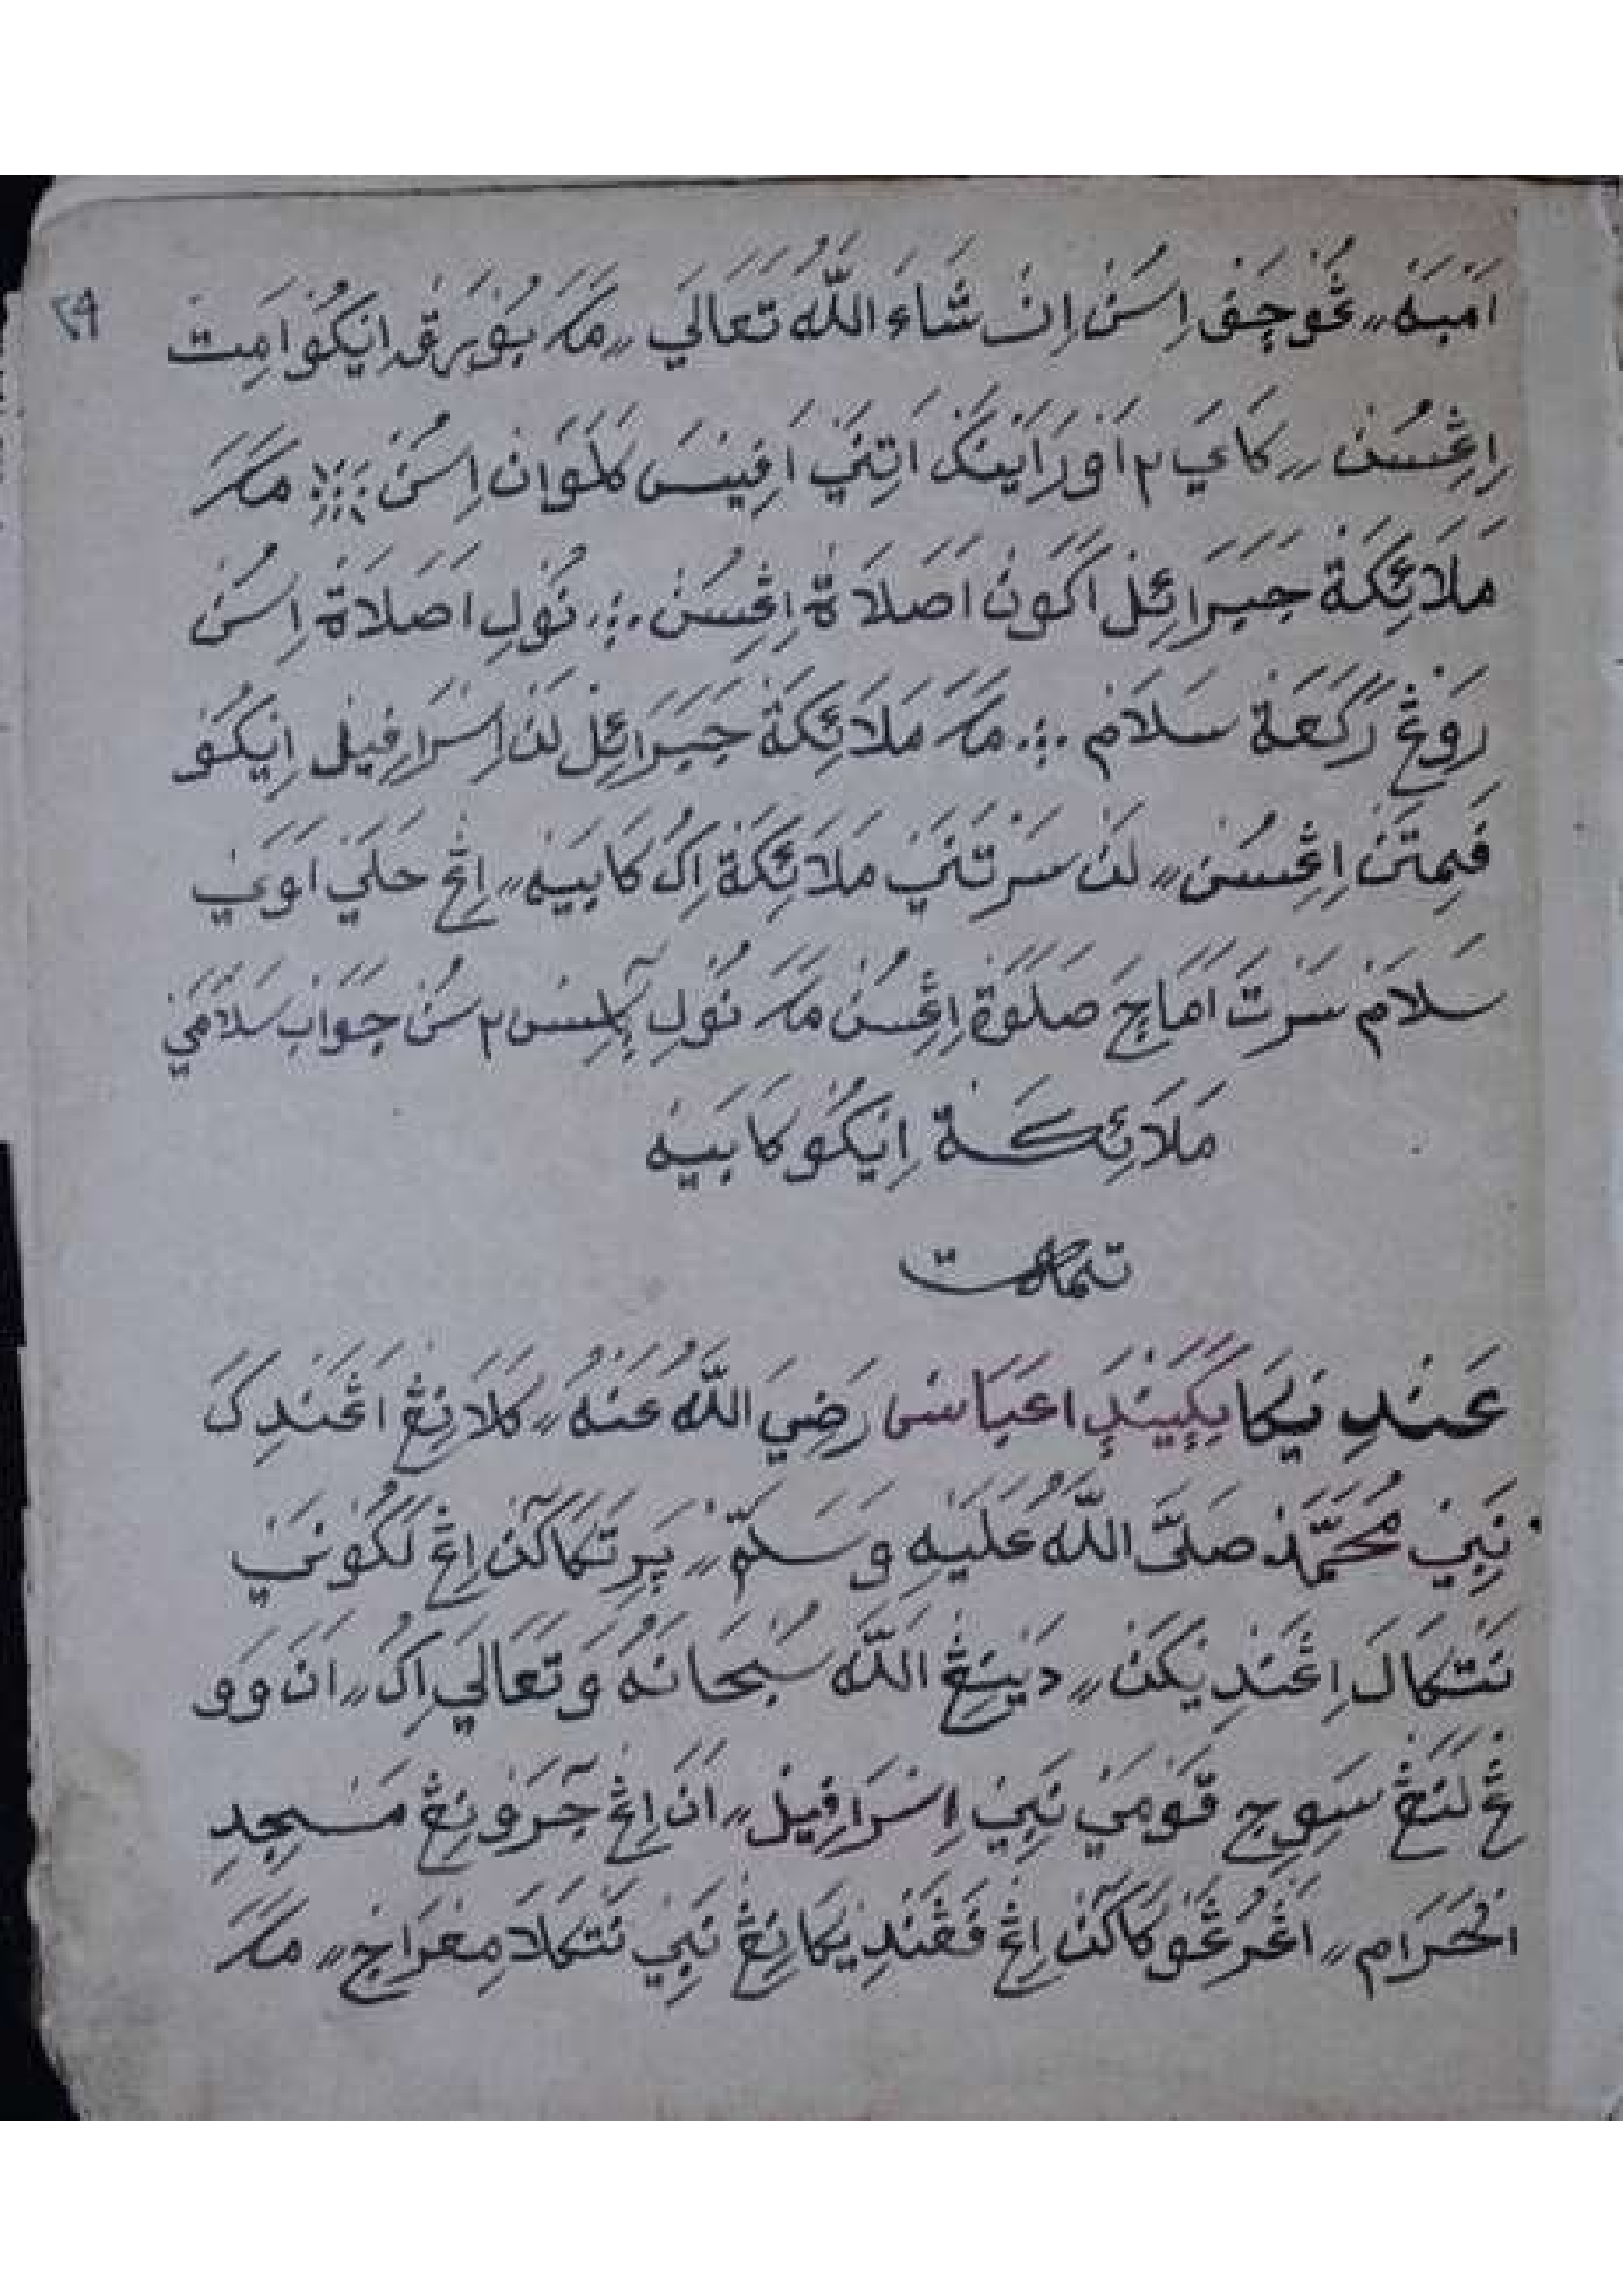 ٢٩
اَمْبَهْ ،، ڠُوْچَفْ اِسُنْ اِنْ شَاءَ اللّٰهُ تَعَالَي ،، مَكَ بُوْرَقْ اِيْكُوْ اَمِتْ
اِڠْسُنْ ،، كَايَ ٢ اَوْرَا يْنَكْ اَتِنَيْ اَفِيْسَ كَلَوَانْ اِسُنْ ؞ مَكَ
مَلَائِكَةْ جَبَرَائِلْ اَكَوْنْ اَصَلَاةْ اِڠْسُنْ ؞ نُوْلِ اَصَلَاةْ اِسُنْ
رَوْڠْ رَكَعَةْ سَلَامْ ؞ مَكَ مَلَائِكَةْ جَبَرَائِلْ لَنْ اِسْرَافِيْلْ اِيْكُوْ
فَمِتَنْ اِڠْسُنْ ،، لَنْ سَرْتَنَيْ مَلَائِكَةْ اِكُ كَابَيَهْ ،، اِڠْ حَلَيْ اَوَيْ
سَلَامْ سَرْتَ اَمَاچَ صَلَوَةْ اِڠْسُنْ مَكَ نُوْلِ بٓلِسْ ٢ سُنْ جَوَابْ سَلَامَيْ
مَلَائِكَةْ اِيْكُوْ كَابَيَهْ
تمت
عَنْدِنِيْكَا بَكِيْنْدَ اعَبَاسْ رَضِيَ اللّٰهُ عَنْهُ ،، كَلَانِڠْ اَڠَنْدِكَ
نَبِيْ مُحَمَّدْ صَلَّى اللّٰهُ عَلَيْهِ وَسَلَّمْ ،، پَرِتَكَاكٓنْ اِڠْ لَكُوْنَيْ
نَتْكَالَ اِڠَنْدِيْكَنْ ،، دَيْنِڠْ اَللّٰهْ سُبْحَانَهُ وَتَعَالَي اِكُ ،، اَنَ وَوْ
ڠْ لَنَڠْ سَوِجِ قَوْمَيْ نَبِيْ اِسْرَافِيْلْ ،، اَنَ اِڠْ جٓرَوْنِڠْ مَسْجِدِ
الْحَرَامْ ،، اَڠْرُڠُوْكَاكٓنْ اِڠْ فَڠَنْدِيْكَانِڠْ نَبِيْ نَتْكَلَا مِعْرَاجْ ،، مَكَ